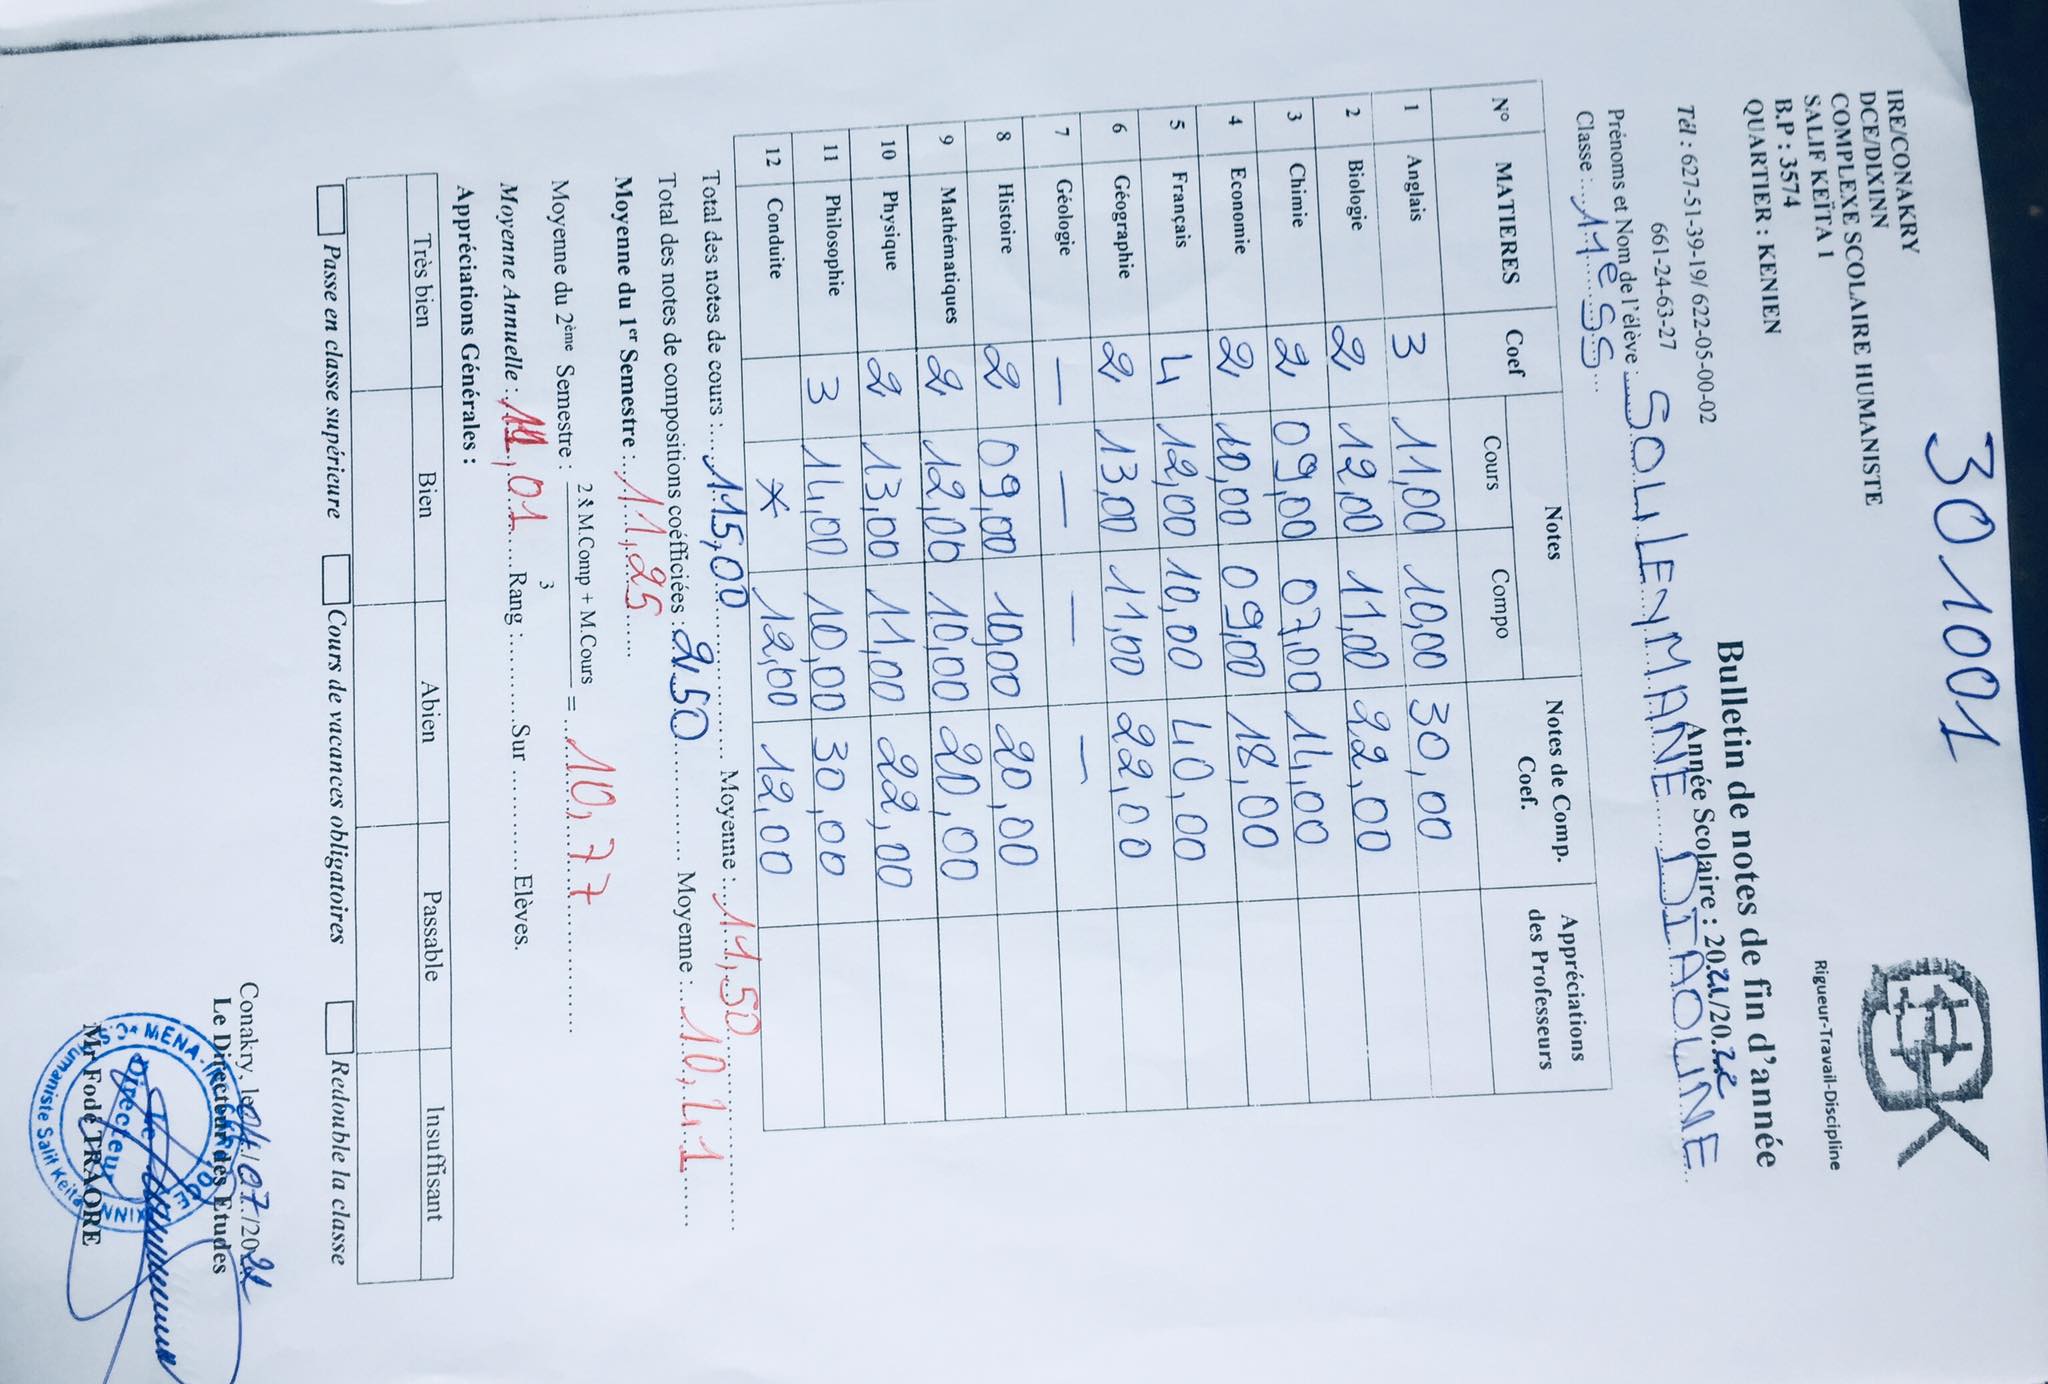 301001
IRE/CONAKRY
DCE/DIXINN
COMPLEXE SCOLAIRE HUMANISTE
SALIF KEÏTA 1
B.P : 3574
QUARTIER : KENIEN
Rigueur-Travail-Discipline
Bulletin de notes de fin d'année
Tél : 627-51-39-19/ 622-05-00-02
661-24-63-27
Année Scolaire : 2021/2022
Prénoms et Nom de l'élève : SOULEYMANE DIAOUNE
Classe : 11e SS
N° MATIERES Coef Notes Notes de Comp. Coef. Appréciations des Professeurs
Cours Compo
1 Anglais 3 11,00 10,00 30,00
2 Biologie 2 12,00 11,00 22,00
3 Chimie 2 09,00 07,00 14,00
4 Economie 2 10,00 09,00 18,00
5 Français 4 12,00 10,00 40,00
6 Géographie 2 13,00 11,00 22,00
7 Géologie — — — —
8 Histoire 2 09,00 10,00 20,00
9 Mathématiques 2 12,00 10,00 20,00
10 Physique 2 13,00 11,00 22,00
11 Philosophie 3 14,00 10,00 30,00
12 Conduite * 12,00 12,00
Total des notes de cours : 115,00 Moyenne : 11,50
Total des notes de compositions coéfficiées : 250 Moyenne : 10,41
Moyenne du 1er Semestre : 11,25
Moyenne du 2ème Semestre : 2 x M.Comp + M.Cours = 10,77
3
Moyenne Annuelle : 11,01 Rang : Sur Elèves.
Appréciations Générales :
Très bien Bien Abien Passable Insuffisant
Passe en classe supérieure Cours de vacances obligatoires Redouble la classe
Conakry, le 04/07/2022
Le Directeur des Etudes
Le Directeur
Mr Fodé TRAORE